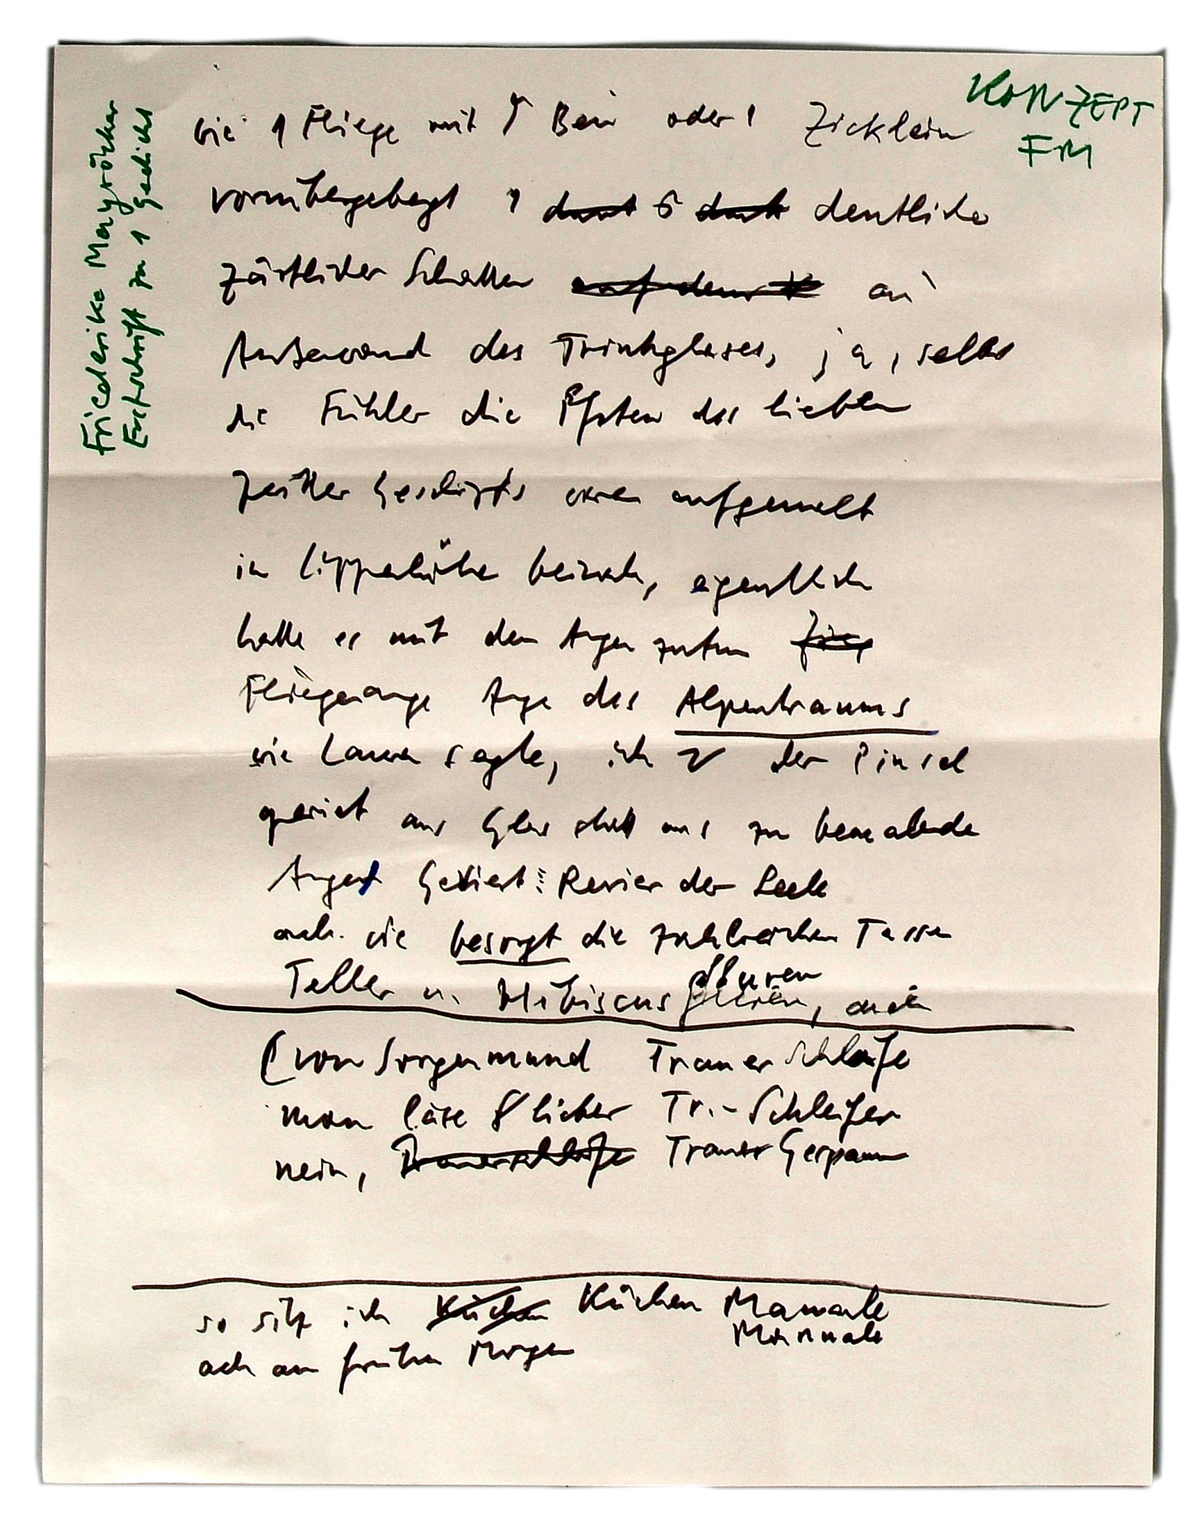 KONZEPT
FM
Friederike Mayröcker
Erstschrift zu 1 Gedicht
wie 1 Fliege mit 1 Bein oder 1 Zicklein
vornübergebeugt 1 deutlicher
zärtlicher Schatten an
Außenwand des Trinkglases, ja, selbst
die Fühler die Pfoten des lieben
zarten Geschöpfs waren aufgemalt
in Lippenhöhe beinah, eigentlich
hatte es mit den Augen zutun
Fliegenauge Auge des Alpentraums
wie Laura sagte, ich der Pinsel
geriet ans Glas statt ans zu bemalende
Auge Getiert Revier der Seele
auch wie besorgt die zahlreichen Tassen
Teller u. Hibiscus fluren, auch
(von Sorgenmund Trauer Schleife
man läse lieber Tr.-Schleifen
nein, Trauer Gespann
so sitz ich Küchen Manuale
Manuale
ach am frühen Morgen